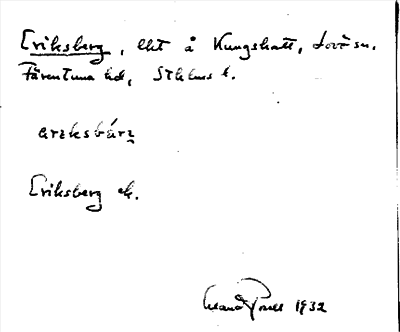 Eriksberg, lht å Kungshatt, Lovö sn.
Färentuna hd, Sthlms l.
Eriksberg ek.
1932